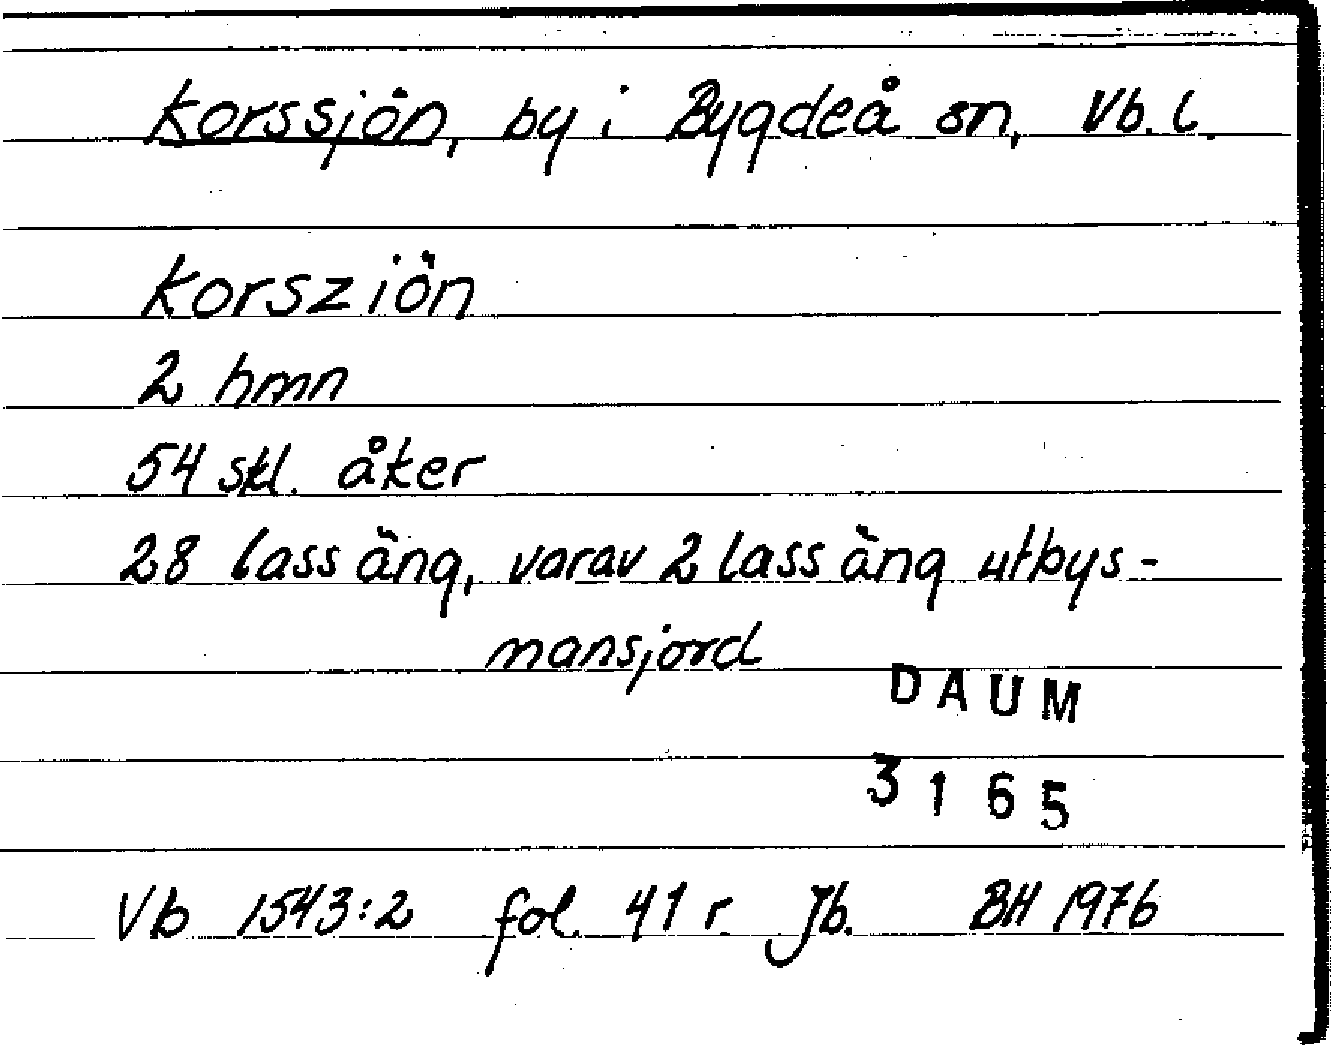 Korssjön, by i Bygdeå sn, Vb. l.
Korsziön
2 hmn
54 skl. åker
28 lass äng, varav 2 lass äng utbys-
mansjord
DAUM
3165
Vb 1543:2 fol. 41 r. Jb. BH 1976